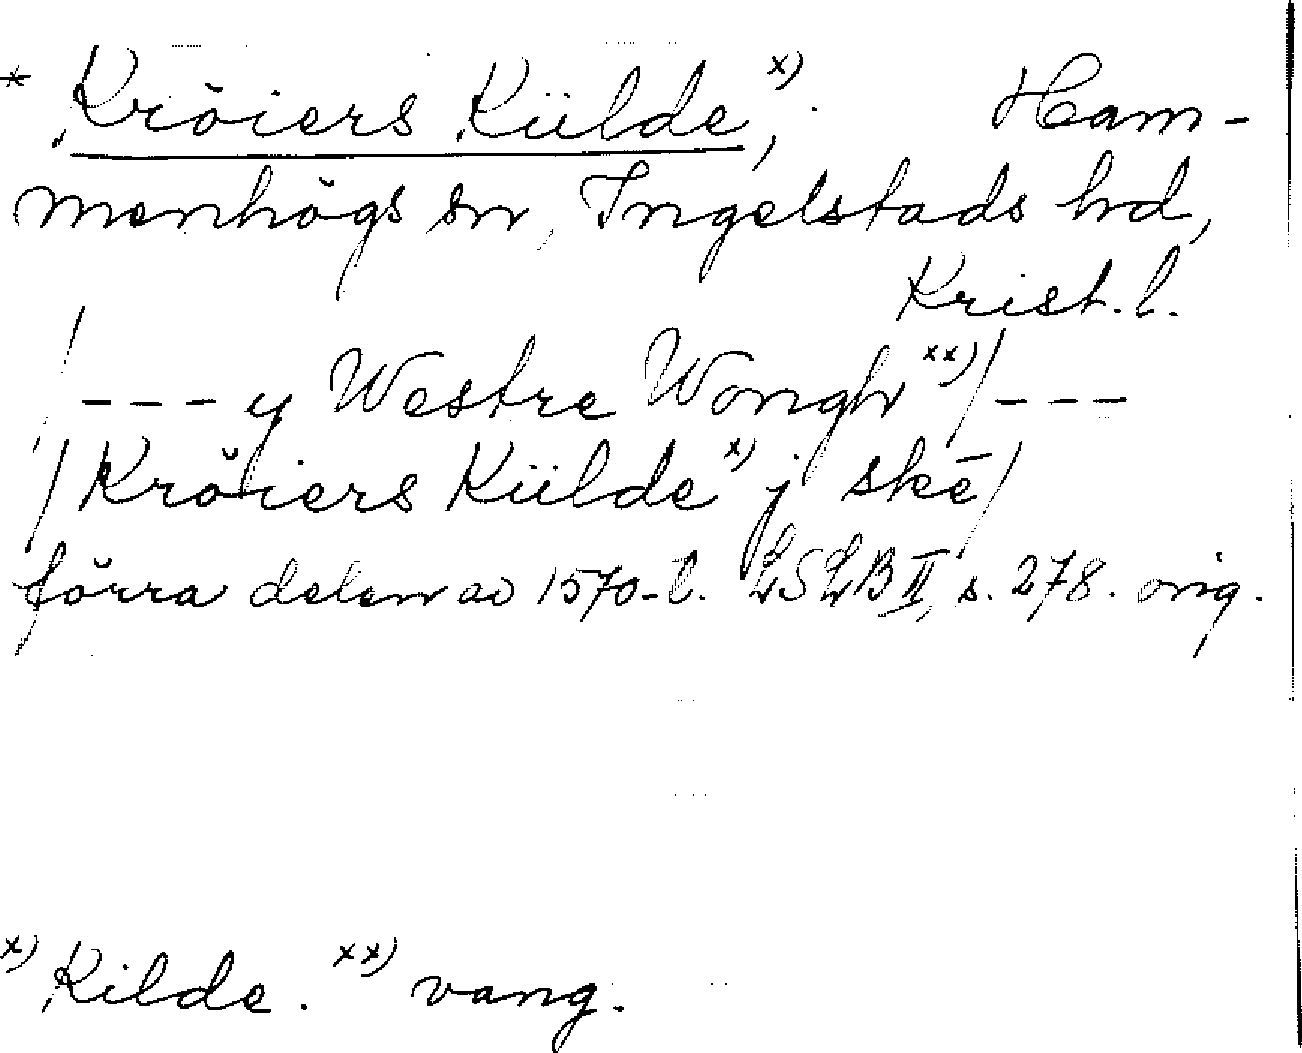 * Kröiers Külde x), Ham-
menhögs sn, Ingelstads hd,
Krist. l.
/--- y Westre Wongh xx)/---
/Kröiers Külde x) j skē/
förra delen av 1570-t. LSLB II, s. 278. orig.
x) Kilde. xx) vang.